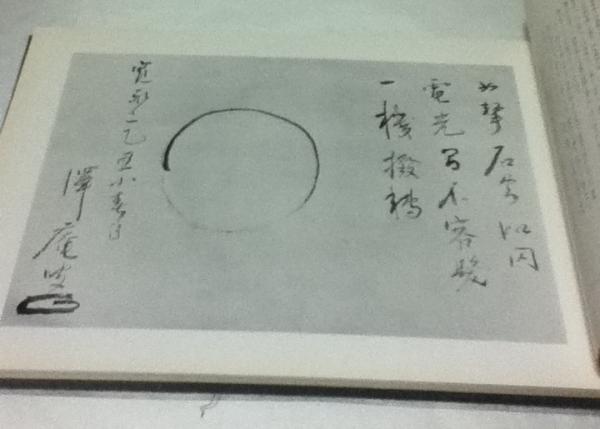 如擊石火似閃
電光間不容髮
一機撥轉
寛永二乙丑小春日
澤庵叟